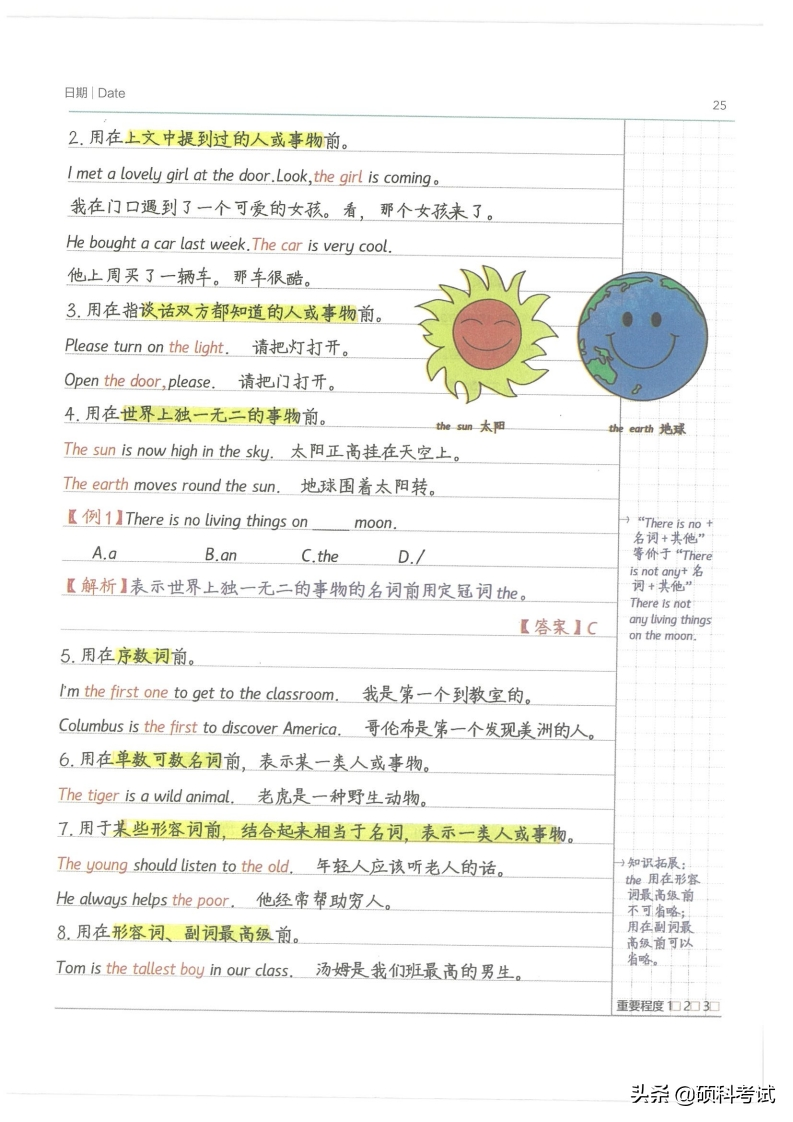 日期 | Date
25
2. 用在上文中提到过的人或事物前。
I met a lovely girl at the door.Look,the girl is coming。
我在门口遇到了一个可爱的女孩。看，那个女孩来了。
He bought a car last week.The car is very cool.
他上周买了一辆车。那车很酷。
3. 用在指谈话双方都知道的人或事物前。
Please turn on the light. 请把灯打开。
Open the door,please. 请把门打开。
4. 用在世界上独一无二的事物前。
the sun 太阳
the earth 地球
The sun is now high in the sky. 太阳正高挂在天空上。
The earth moves round the sun. 地球围着太阳转。
【例1】There is no living things on ____ moon.
A.a B.an C.the D./
【解析】表示世界上独一无二的事物的名词前用定冠词the。
【答案】C
→ “There is no +
名词+其他”
等价于“There
is not any+ 名
词+其他”
There is not
any living things
on the moon.
5. 用在序数词前。
I'm the first one to get to the classroom. 我是第一个到教室的。
Columbus is the first to discover America. 哥伦布是第一个发现美洲的人。
6. 用在单数可数名词前，表示某一类人或事物。
The tiger is a wild animal. 老虎是一种野生动物。
7. 用于某些形容词前，结合起来相当于名词，表示一类人或事物。
The young should listen to the old. 年轻人应该听老人的话。
He always helps the poor. 他经常帮助穷人。
8. 用在形容词、副词最高级前。
Tom is the tallest boy in our class. 汤姆是我们班最高的男生。
→知识拓展：
the 用在形容
词最高级前
不可省略；
用在副词最
高级前可以
省略。
重要程度 1□ 2□ 3□
头条 @硕科考试